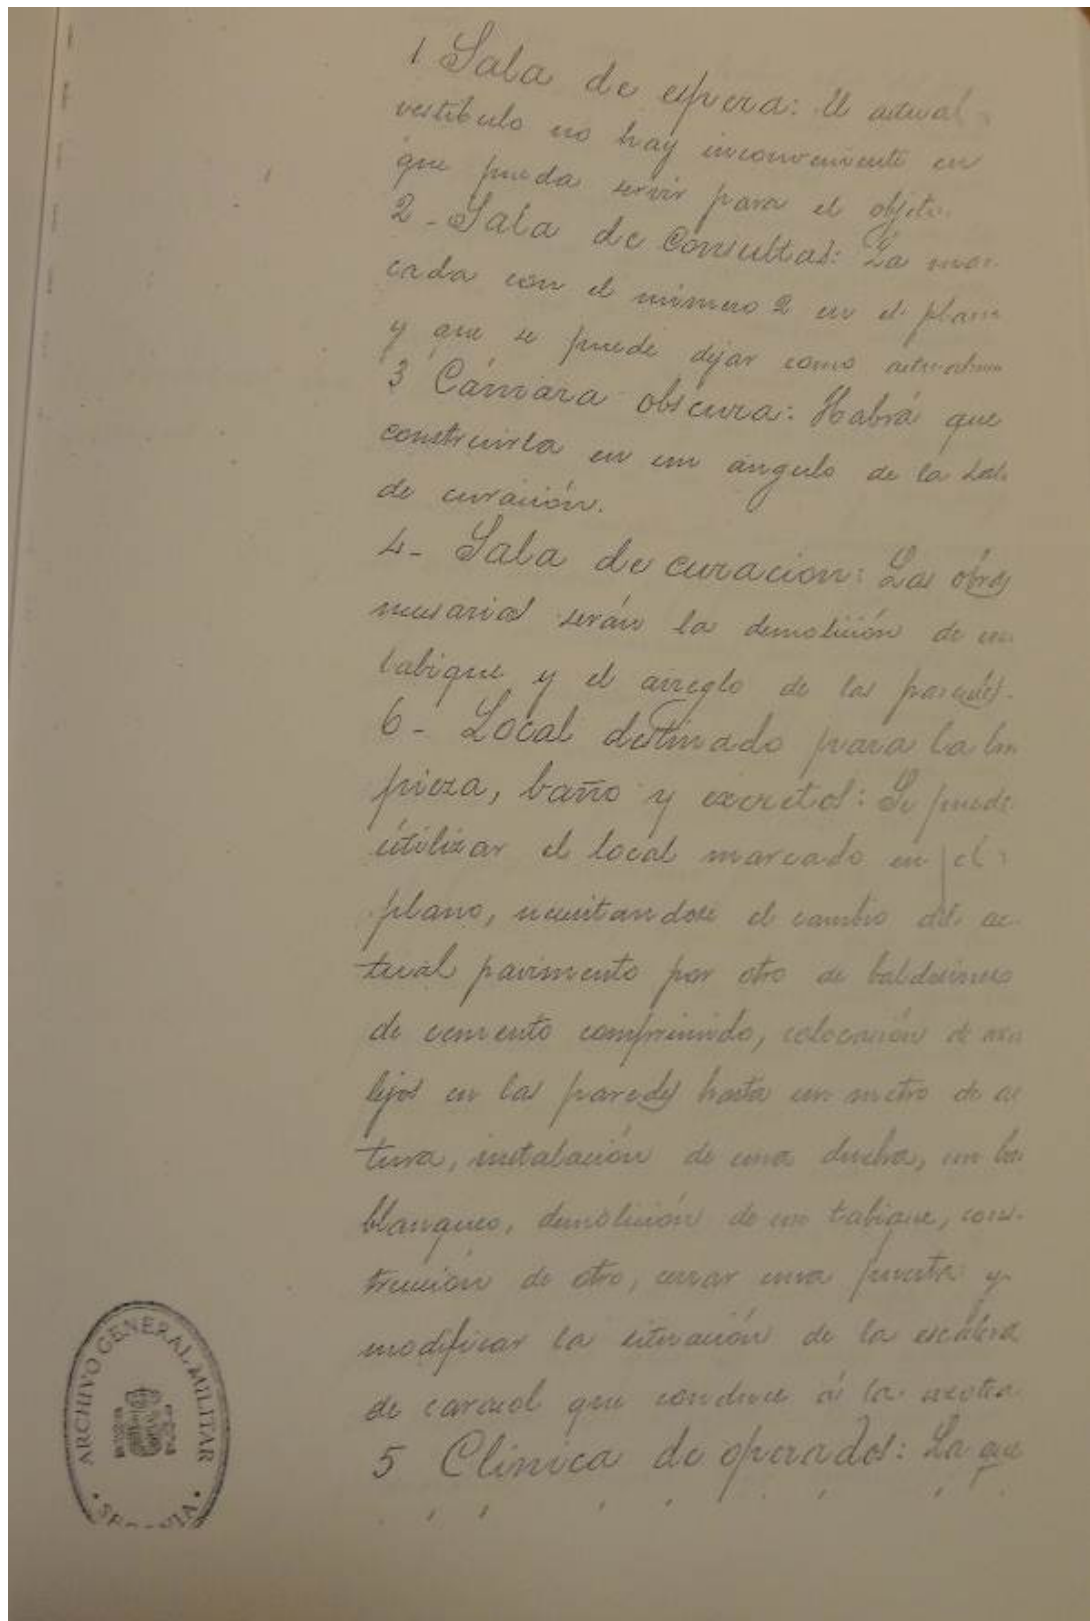 1 Sala de espera: El actual
vestíbulo no hay inconveniente en
que pueda servir para el objeto.
2 - Sala de Consultas: La mar-
cada con el número 2 en el plano
y que se puede dejar como
3 Cámara obscura: Habrá que
construirla en un ángulo de la Sala
de curación.
4- Sala de curacion: Las obras
necesarias serán la demolición de un
tabique y el arreglo de las paredes.
6 - Local destinado para la lim
pieza, baño y excretos: Se puede
útilizar el local marcado en el
plano, necesitandose el cambio del ac-
tual pavimento por otro de baldosines
de cemento comprimido, colocación de azu
lejos en las paredes hasta un metro de al
tura, instalación de una ducha, un
blanqueo, demolición de un tabique, cons-
trucción de otro, cerrar una puerta y
modificar la situación de la escalera
de caracol que conduce á la azotea
5 Clínica de operados: La que
ARCHIVO GENERAL MILITAR